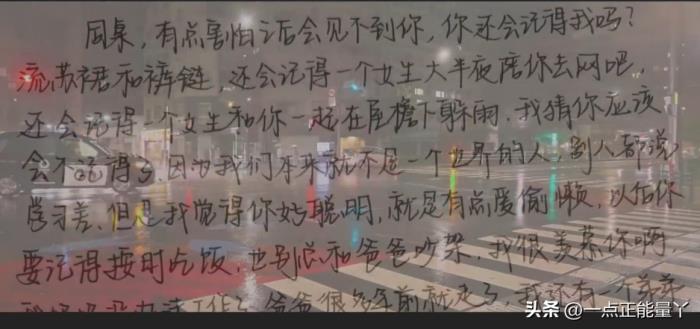 同桌，有点害怕之后会见不到你，你还会记得我吗？
流苏裙和裤链，还会记得一个女生大半夜陪你去网吧，
还会记得一个女生和你一起在屋檐下躲雨，我猜你应该
会不记得了，因为我们本来就不是一个世界的人，别人都说
学习差，但是我觉得你好聪明，就是有点爱偷懒，以后你
要记得按时吃饭，也别总和爸爸吵架，我很羡慕你啊，
没办法工作了，爸爸很多年前就走了，我还有一个弟弟
头条 @一点正能量丫